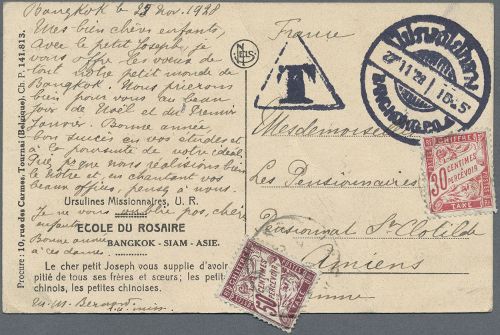 Bangkok le 27 Nov. 1928
Mes bien chers enfants,
Avec le petit Joseph, je
vous offre les vœux de
tout notre petit monde de
Bangkok. Nous prierons
bien pour vous au beau
jour de Noël et du Premier
Janvier. Bonne année,
bon succès en vos études et
à la poursuite de notre idéal
que nous réalisions bien
le Notre et, en chantant vos
beaux offices, pensez à nous.
Ursulines Missionnaires, U. R.
Je ne vous pas, chères
enfants
ECOLE DU ROSAIRE
BANGKOK - SIAM - ASIE.
Bonne année
à ces dames.
Le cher petit Joseph vous supplie d'avoir
pitié de tous ses frères et sœurs; les petits
chinois, les petites chinoises.
M. M. Bernard
Procure : 10, rue des Carmes, Tournai (Belgique). Ch. P. 141.813.
NELS
T
ไปรษณีย์สยาม
27 11 28
16.45
BANGKOK G.P.O.
France
Mesdemoiselles
Les Pensionnaires
Pensionnat Ste Clotilde
Amiens
Somme
CHIFFRE
30 CENTIMES À PERCEVOIR
TAXE
50 CENTIMES À PERCEVOIR